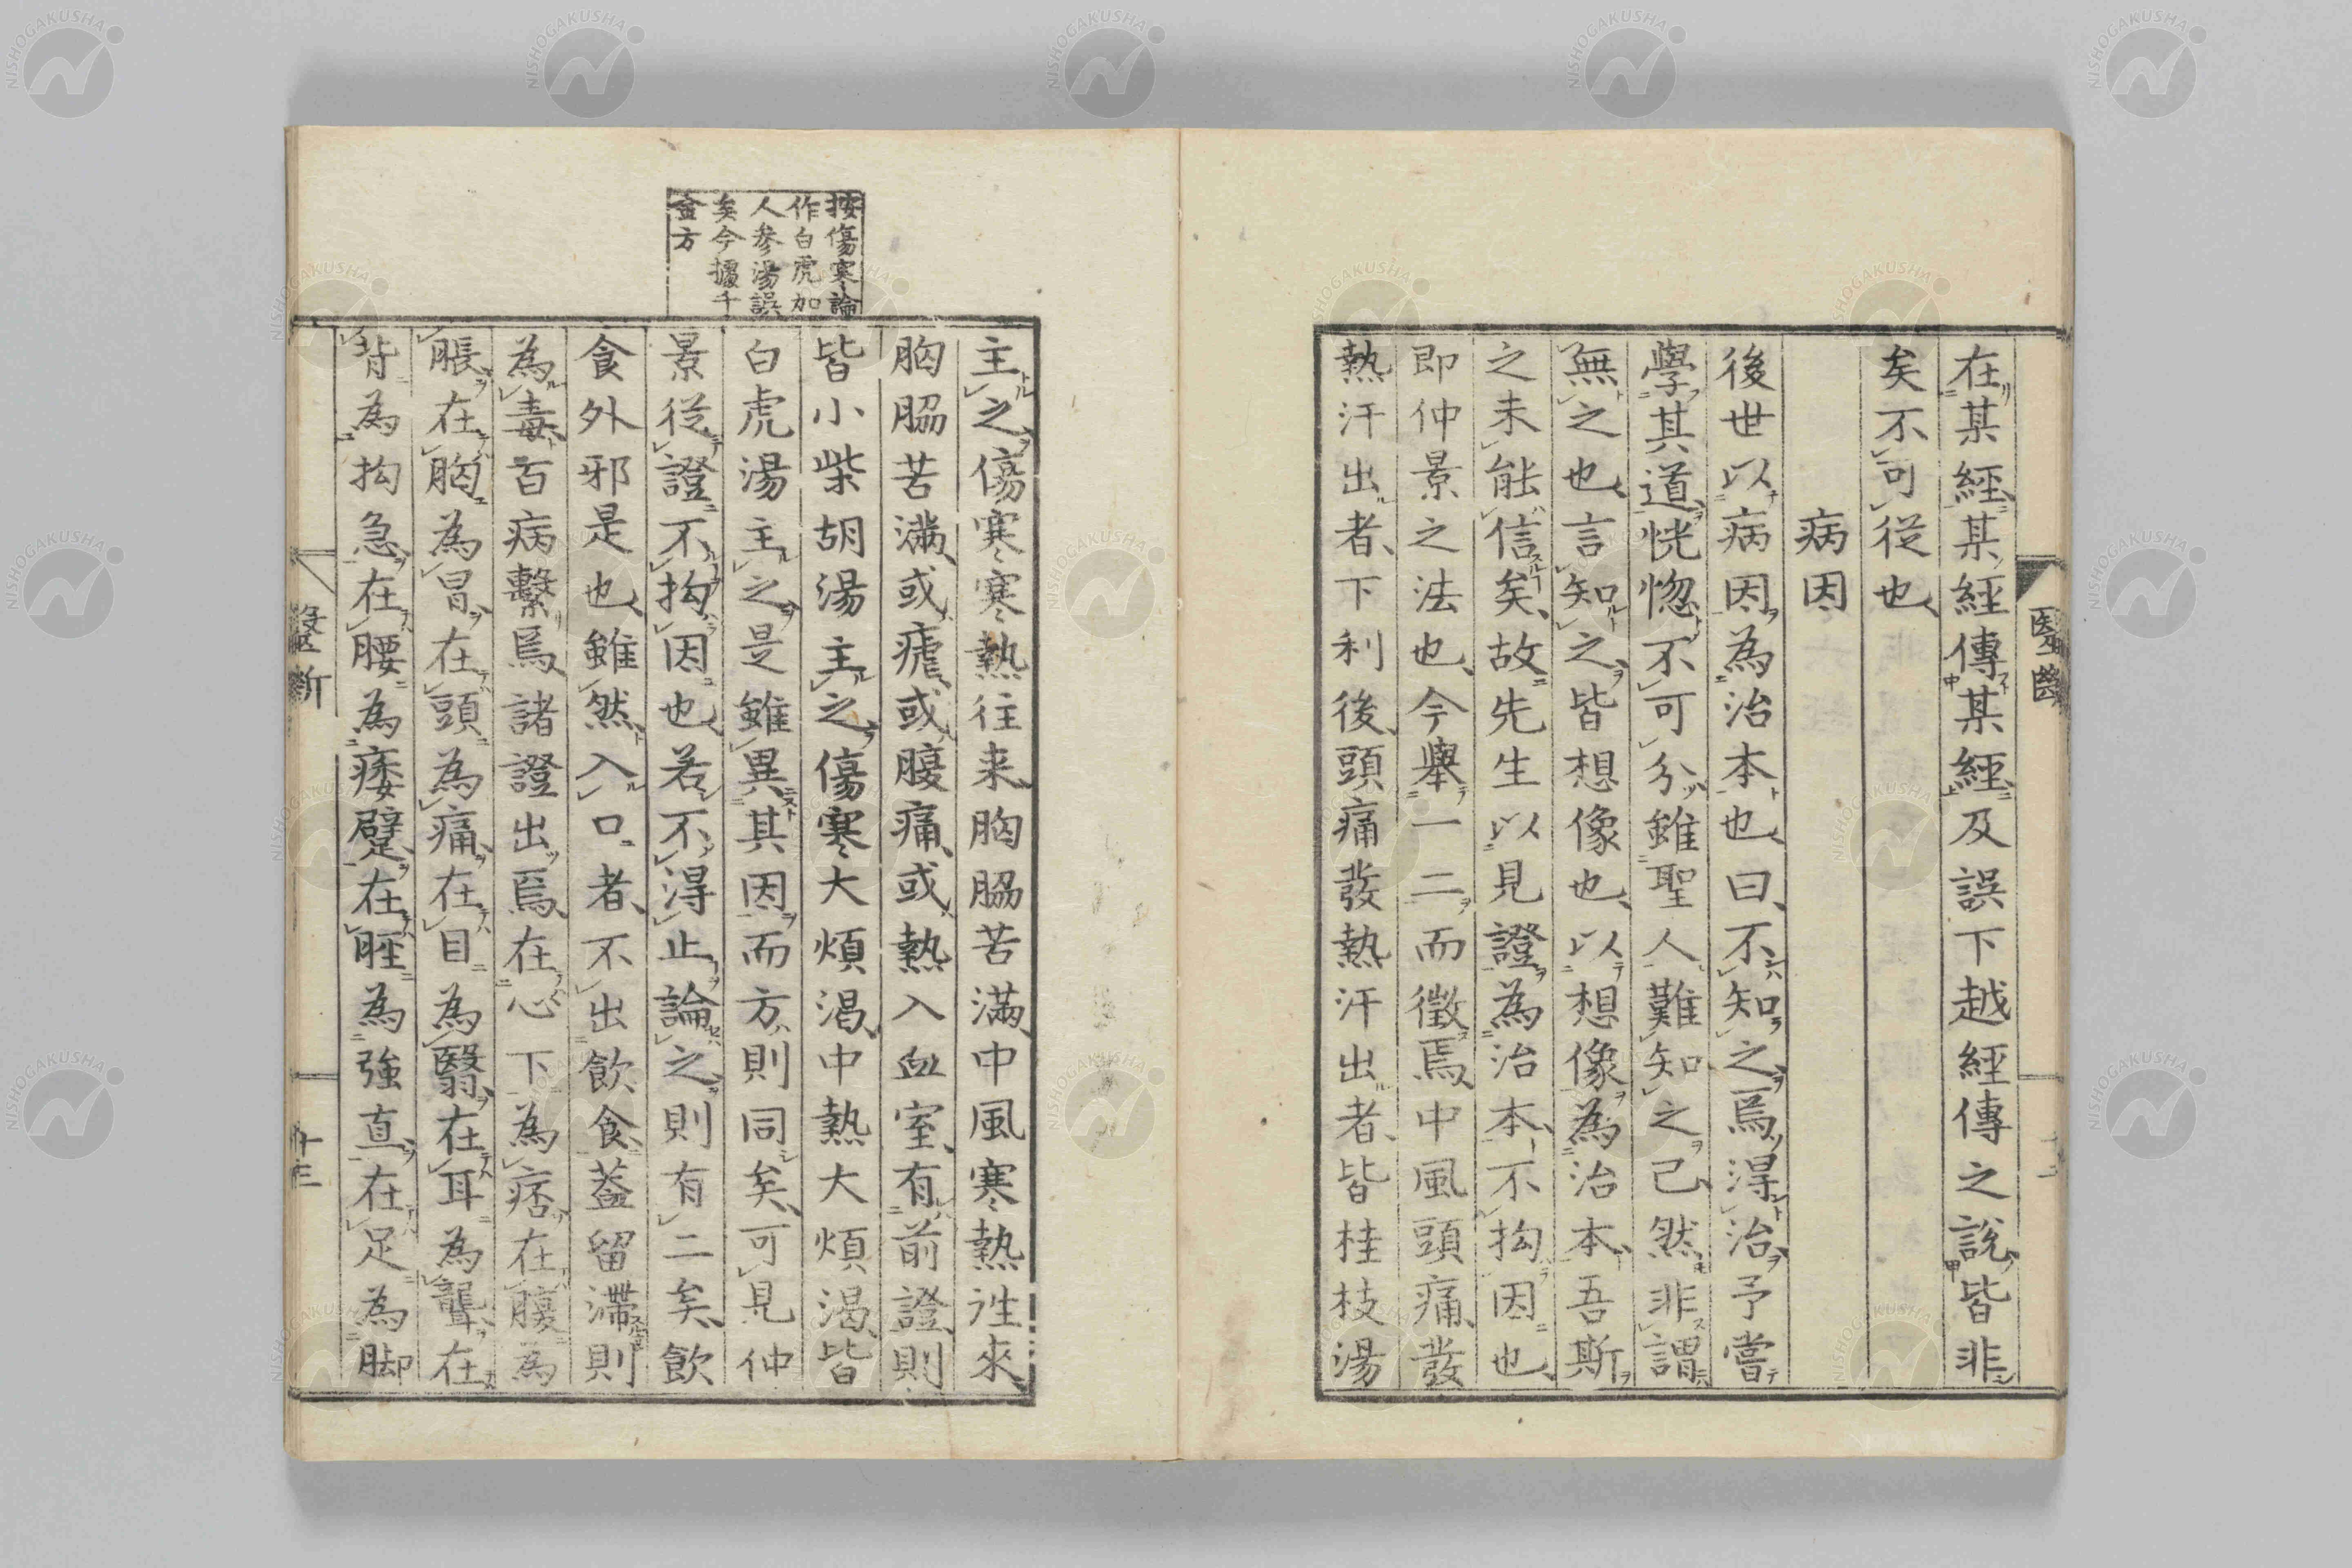 在某經某經傳某經及誤下越經傳之說皆非
矣不可從也
病因
後世以病因為治本也曰不知之焉得治予嘗
學其道恍惚不可分雖聖人難知之已然非謂
無之也言知之皆想像也以想像為治本吾斯
之未能信矣故先生以見證為治本不拘因也
即仲景之法也今舉一二而徵焉中風頭痛發
熱汗出者下利後頭痛發熱汗出者皆桂枝湯
按傷寒論
作白虎加
人參湯誤
矣今據千
金方
主之傷寒寒熱往来胸脇苦滿中風寒熱往來
胸脇苦滿或瘧或腹痛或熱入血室有前證則
皆小柴胡湯主之傷寒大煩渴中熱大煩渴皆
白虎湯主之是雖異其因而方則同矣可見仲
景從證不拘因也若不得止論之則有二矣飲
食外邪是也雖然入口者不出飲食蓋留滯則
為毒百病繫焉諸證出焉在心下為痞在腹為
脹在胸為冒在頭為痛在目為翳在耳為聾在
背為拘急在腰為痿躄在脛為強直在足為脚
醫斷
十三
NISHOGAKUSHA